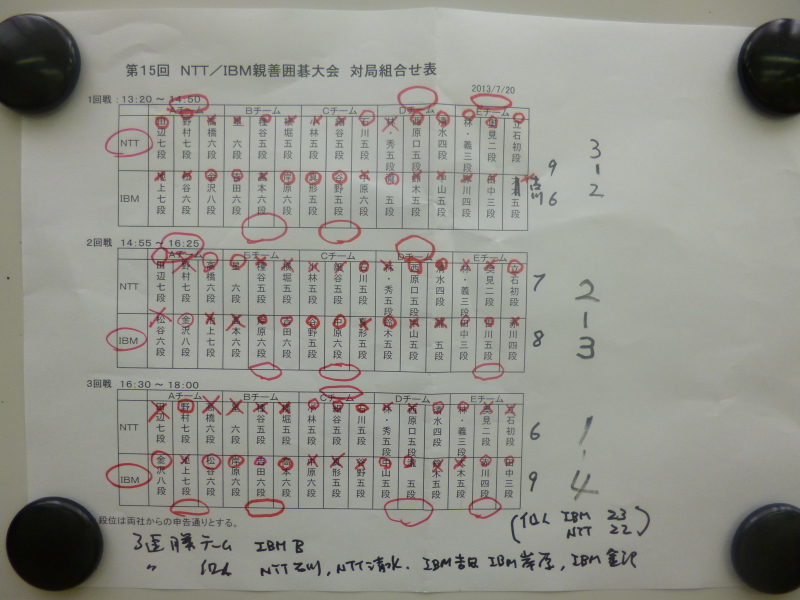 第15回 NTT／IBM親善囲碁大会 対局組合せ表
2013/7/20
1回戦：13:20 ～ 14:50
Aチーム Bチーム Cチーム Dチーム Eチーム
NTT 田辺七段 野村七段 高橋六段 星 六段 種谷五段 横堀五段 小林五段 細谷五段 石川五段 林・秀五段 西原口五段 清水四段 林・義三段 奥見二段 立石初段
IBM 池上七段 松谷六段 金沢八段 吉田六段 宮本六段 岸原六段 五段 谷野五段 六段 五段 鈴木五段 中山五段 四段 田中三段 五段
9
6
3
1
2
2回戦 14:55 ～ 16:25
Aチーム Bチーム Cチーム Dチーム Eチーム
NTT 田辺七段 野村七段 高橋六段 星 六段 種谷五段 横堀五段 小林五段 細谷五段 石川五段 林・秀五段 西原口五段 清水四段 林・義三段 奥見二段 立石初段
IBM 松谷六段 金沢八段 池上七段 宮本六段 岸原六段 吉田六段 谷野五段 六段 五段 鈴木五段 中山五段 五段 田中三段 五段 四段
7
8
2
1
3
3回戦 16:30 ～ 18:00
Aチーム Bチーム Cチーム Dチーム Eチーム
NTT 田辺七段 野村七段 高橋六段 星 六段 種谷五段 横堀五段 小林五段 細谷五段 石川五段 林・秀五段 西原口五段 清水四段 林・義三段 奥見二段 立石初段
IBM 金沢八段 池上七段 松谷六段 岸原六段 吉田六段 宮本六段 六段 五段 谷野五段 中山五段 五段 鈴木五段 五段 四段 田中三段
6
9
1
4
段位は両社からの申告通りとする。
(個人 IBM 23
NTT 22)
3連勝チーム IBM B
〃 個人 NTT 石川, NTT 清水. IBM 吉田 IBM 岸原, IBM 金沢